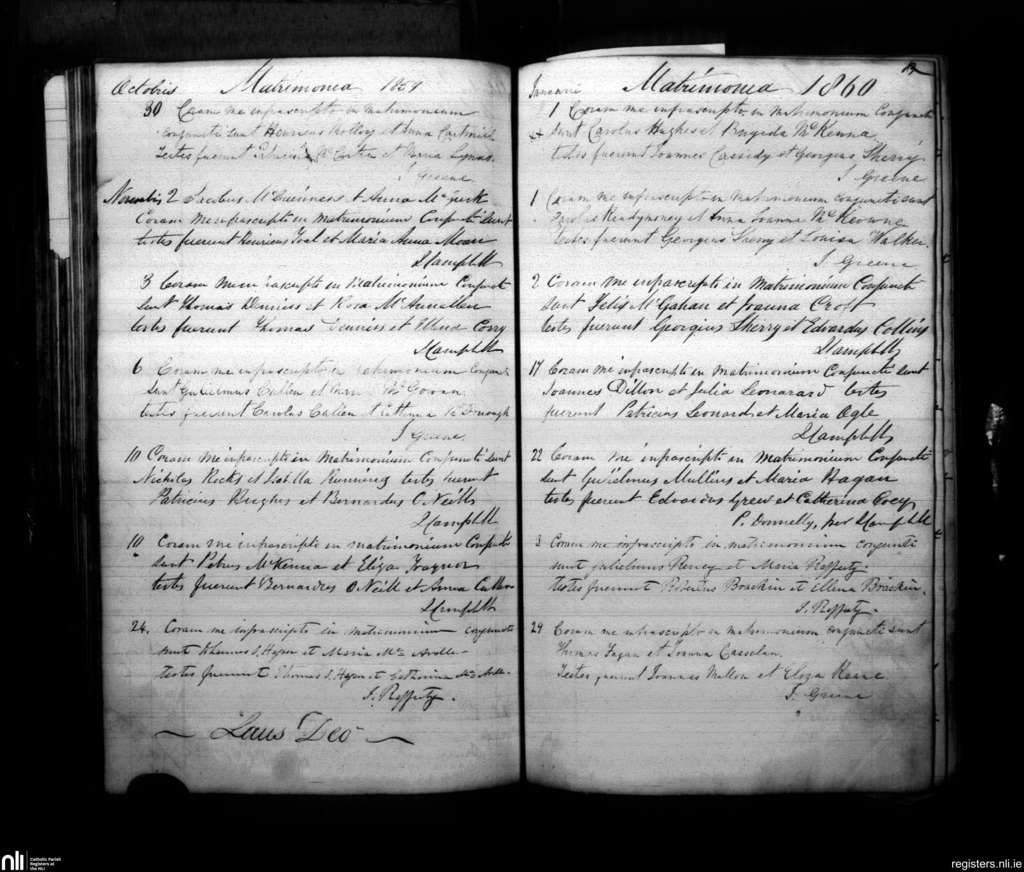 Octobris Matrimonia 1859
30 Coram me infrascripto in matrimonium
conjuncti sunt Henricus et Anna
Testes fuerunt Mc et Maria Lynas
J Greene
Novembris 2 Jacobus McGuinness et Anna McGurk
Coram me infrascripto in matrimonium Conjuncti sunt
testes fuerunt Henricus et Maria Anna Moan
J Campbell
3 Coram me infrascripto in Matrimonium Conjuncti
sunt Thomas Denniss et Rosa McAnnallen
testes fuerunt Thomas Denniss et Ellena Corry
J Campbell
6 Coram me infrascripto in matrimonium conjuncti
sunt Gulielmus Callen et Mc Govan
testes fuerunt Carolus Callen et
J Greene
10 Coram me infrascripto in Matrimonium Conjuncti sunt
Nicholas Rocks et Isabella testes fuerunt
Patricius Hughes et Bernardus O Neill
J Campbell
10 Coram me infrascripto in matrimonium Conjuncti
sunt Petrus McKenna et Eliza Traynor
testes fuerunt Bernardus O Neill et Anna Callen
J Campbell
24. Coram me infrascripto in matrimonium conjuncti
sunt Thomas J. Hagan et Maria Mc
testes fuerunt Thomas J. Hagan et Catherina Mc
J. Rafferty.
Laus Deo
Januarii Matrimonia 1860
1 Coram me infrascripto in matrimonium Conjuncti
sunt Carolus Hughes et Brigida McKenna
testes fuerunt Joannes Cassidy et Georgius Sherry
J Greene
1 Coram me infrascripto in matrimonium conjuncti sunt
et Anna Joanna McKeowne
testes fuerunt Georgius et Louisa Walker.
J Greene
2 Coram me infrascripto in Matrimonium Conjuncti
sunt Felix McGahan et Joanna Croft
testes fuerunt Georgius Sherry et Edvardus Collins
J Campbell
17 Coram me infrascripto in Matrimonium Conjuncti sunt
Joannes Dillon et Julia Leonarard testes
fuerunt Patricius Leonard et Maria Ogle
J Campbell
22 Coram me infrascripto in Matrimonium Conjuncti
sunt Guielmus Mullins et Maria Hagan
testes fuerunt Edvardus Grew et Catherina
P. Donnelly, per J Campbell
3 Coram me infrascripto in matrimonium conjuncti
sunt Julielmus et Maria Rafferty.
testes fuerunt Brackin et Ellena Brackin.
J. Rafferty.
29 Coram me infrascripto in matrimonium conjuncti sunt
Thomas Fagan et Joanna
Testes fuerunt Joannes Mallon et Eliza Keane
J. Greene
nli Catholic Parish
Registers at
the NLI
registers.nli.ie